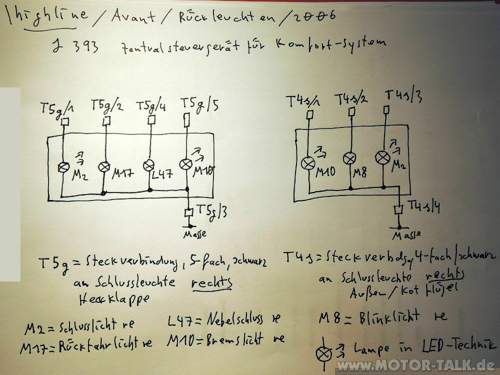 highline / Avant / Rückleuchten / 2006
J 393 Zentralsteuergerät für Komfort-System
T5g/1 T5g/2 T5g/4 T5g/5
T4s/1 T4s/2 T4s/3
M2 M17 L47 M10
M10 M8 M2
T5g/3
Masse
T4s/4
Masse
T5g = Steckverbindung, 5-fach, schwarz
an Schlussleuchte rechts
Heckklappe
T4s = Steckverbdg, 4-fach/schwarz
an Schlussleuchte rechts
Außen / Kotflügel
M2 = Schlusslicht re L47 = Nebelschluss re
M17 = Rückfahrlicht re M10 = Bremslicht re
M8 = Blinklicht re
= Lampe in LED-Technik
www.MOTOR-TALK.de